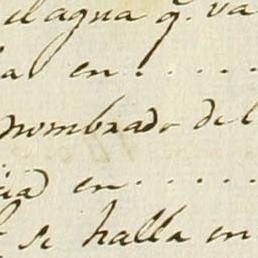 el agua q. va
a en. . . . .
nombrado del
cia en. . . . .
se halla en